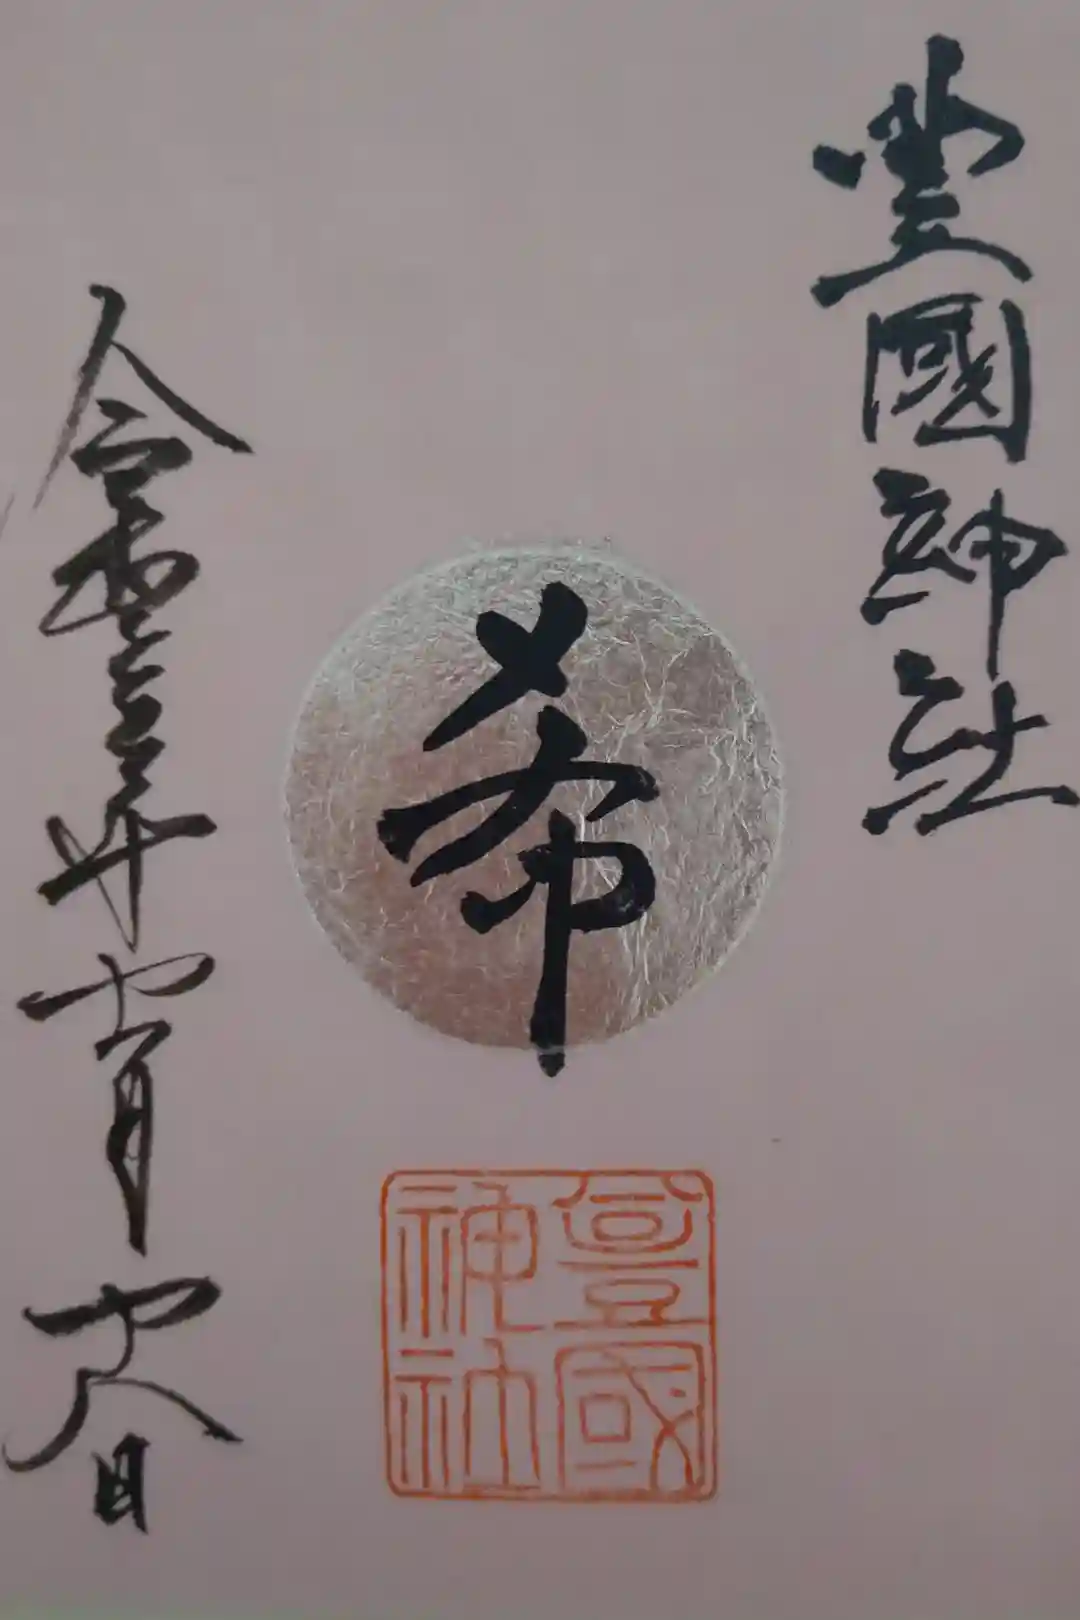 豊國神社
希
令和三年十一月十八日
豊國
神社